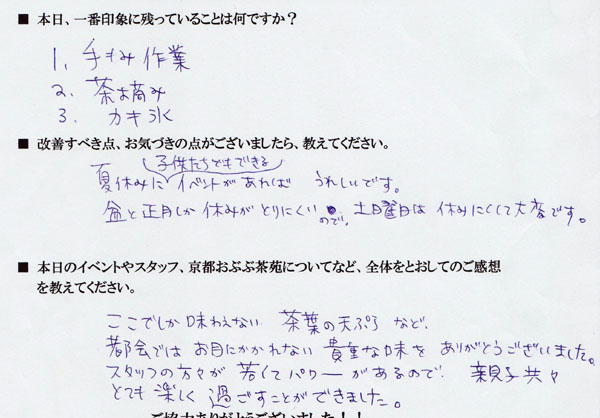 ■ 本日、一番印象に残っていることは何ですか？
1. 手もみ作業
2. 茶お摘み
3. カキ氷
■ 改善すべき点、お気づきの点がございましたら、教えてください。
子供たちでもできる
夏休みにイベントがあれば うれしいです。
盆と正月しか休みがとりにくいので、土日曜日は休みにくくて大変です。
■ 本日のイベントやスタッフ、京都おぶぶ茶苑についてなど、全体をとおしてのご感想
を教えてください。
ここでしか味わえない 茶葉の天ぷらなど、
都会ではお目にかかれない貴重な味をありがとうございました。
スタッフの方々が若くてパワーがあるので、親子共々
とても楽しく過ごすことができました。
ご協力ありがとうございました！！